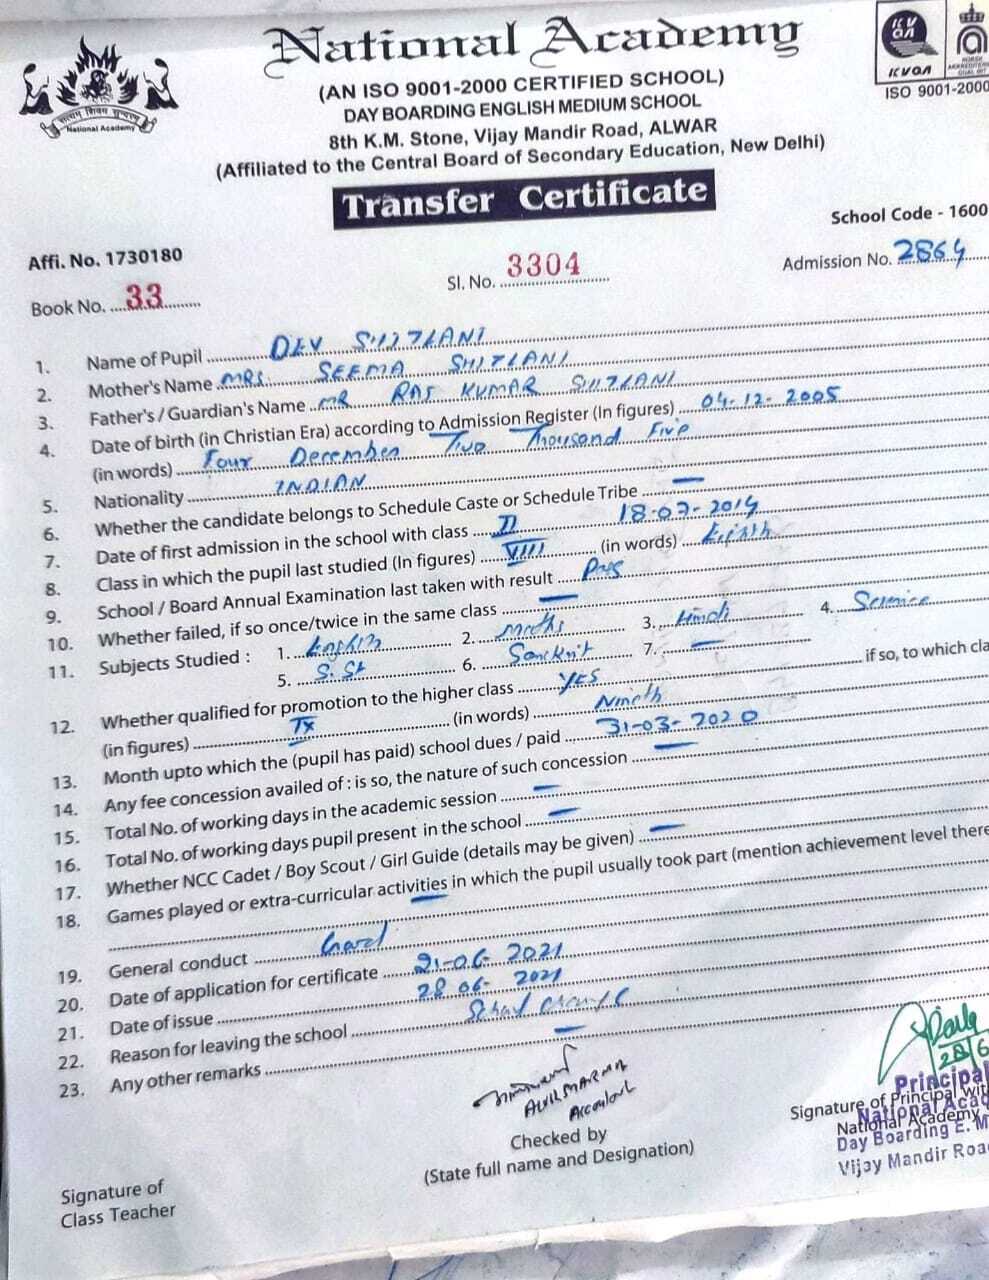 National Academy
(AN ISO 9001-2000 CERTIFIED SCHOOL)
DAY BOARDING ENGLISH MEDIUM SCHOOL
8th K.M. Stone, Vijay Mandir Road, ALWAR
(Affiliated to the Central Board of Secondary Education, New Delhi)
सत्यम् शिवम् सुन्दरम्
National Academy
KVQA
ISO 9001-2000
Transfer Certificate
School Code - 1600
Affi. No. 1730180
Book No. 33
Sl. No. 3304
Admission No. 2864
1. Name of Pupil DEV SHITLANI
2. Mother's Name MRS. SEEMA SHITLANI
3. Father's / Guardian's Name MR RAJ KUMAR SHITLANI
4. Date of birth (in Christian Era) according to Admission Register (In figures) 04-12-2005
(in words) Four December Two Thousand Five
5. Nationality INDIAN
6. Whether the candidate belongs to Schedule Caste or Schedule Tribe —
7. Date of first admission in the school with class II 18-07-2014
8. Class in which the pupil last studied (In figures) VIII (in words) Eighth
9. School / Board Annual Examination last taken with result Pass
10. Whether failed, if so once/twice in the same class —
11. Subjects Studied : 1. English 2. Maths 3. Hindi 4. Science
5. S. St 6. Sanskrit 7. —
12. Whether qualified for promotion to the higher class YES if so, to which cla
(in figures) IX (in words) Nineth
13. Month upto which the (pupil has paid) school dues / paid 31-03-2020
14. Any fee concession availed of : is so, the nature of such concession —
15. Total No. of working days in the academic session —
16. Total No. of working days pupil present in the school —
17. Whether NCC Cadet / Boy Scout / Girl Guide (details may be given) —
18. Games played or extra-curricular activities in which the pupil usually took part (mention achievement level there
—
19. General conduct Good
20. Date of application for certificate 21-06-2021
21. Date of issue 28-06-2021
22. Reason for leaving the school School Change
23. Any other remarks —
Accountant
28/6
Checked by
(State full name and Designation)
Signature of Principal with
Principal
National Academy
Day Boarding E. M
Vijay Mandir Roa
Signature of
Class Teacher